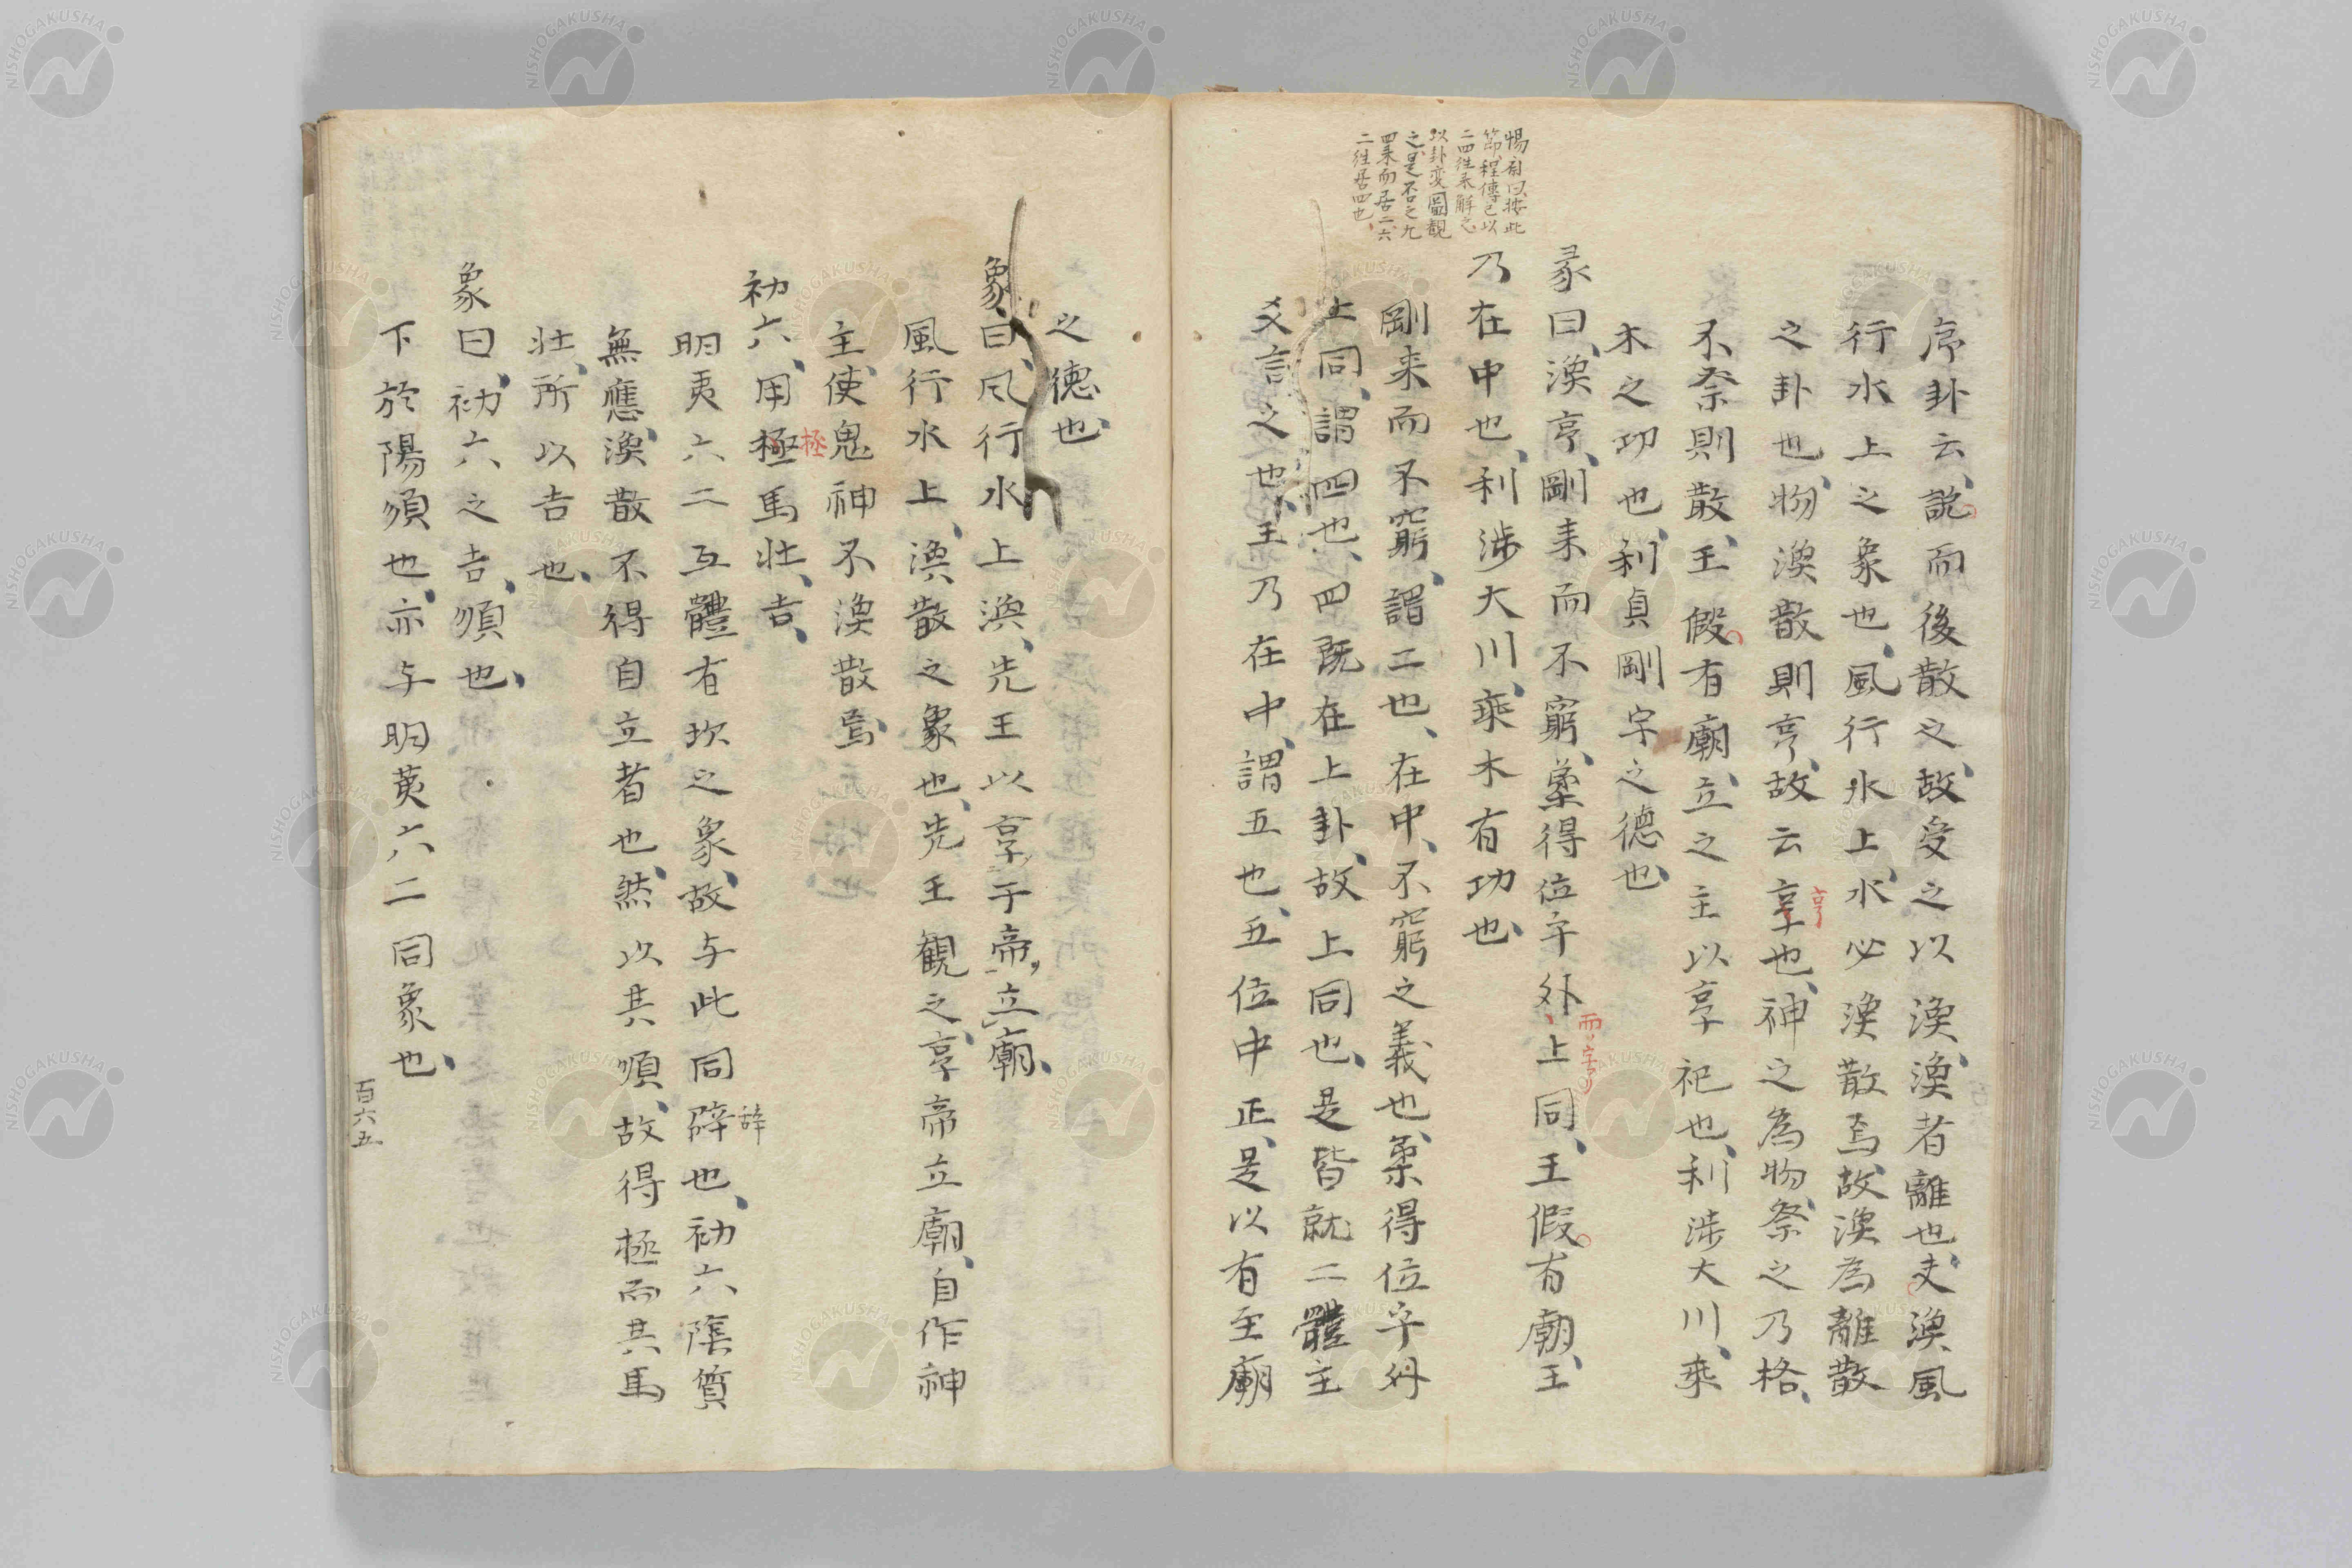 惕斎曰按此
節程傳已以
二四往来解之
以卦変圖觀
之是否之九
四来而居二六
二往居四也、
序卦云、説而後散之、故受之以渙、渙者離也、夫渙風
行水上之象也、風行水上、水必渙散焉、故渙為離散
之卦也、物渙散則亨、故云享也、神之為物、祭之乃格、
亨
不祭則散、王假有廟、立之主以享祀也、利涉大川、乗
木之功也、利貞剛字之德也、
彖曰、渙亨、剛来而不窮、柔得位乎外、上同、王假有廟、王
而
乃在中也、利涉大川、乗木有功也、
剛来而不窮、謂二也、在中、不窮之義也、柔得位乎外
上同、謂四也、四既在上卦、故上同也、是皆就二體主
爻言之也、王乃在中、謂五也、五位中正、是以有至廟
之德也、
象曰、風行水上渙、先王以享于帝、立廟、
風行水上、渙散之象也、先王觀之、享帝立廟、自作神
主、使鬼神不渙散焉、
初六、用極馬壮、吉、
極
明夷六二互體有坎之象、故与此同辟也、初六陰質
辞
無應、渙散不得自立者也、然以其順、故得極而其馬
壮、所以吉也、
象曰、初六之吉、順也、
下於陽順也、亦与明夷六二同象也、
百六五
NISHOGAKUSHA